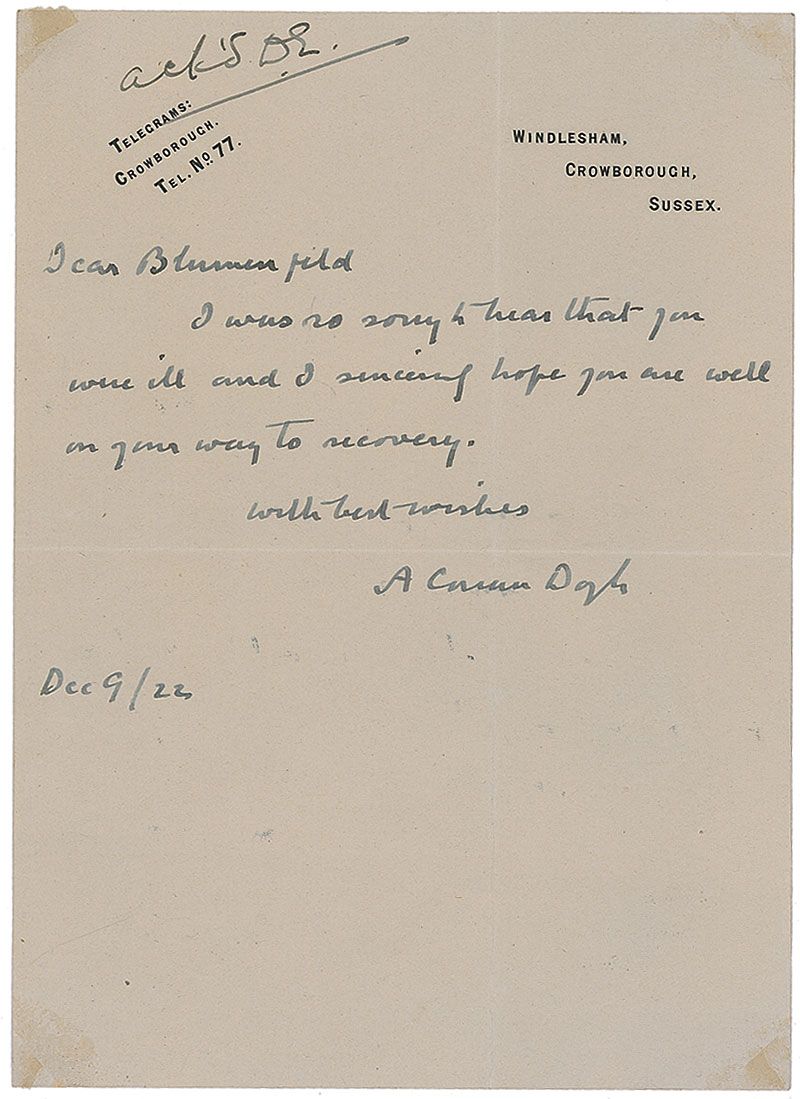 ack'd DE.
TELEGRAMS:
CROWBOROUGH.
TEL. No. 77.
WINDLESHAM,
CROWBOROUGH,
SUSSEX.
Dear Blumenfeld
I was so sorry to hear that you
were ill and I sincerely hope you are well
on your way to recovery.
With best wishes
A Conan Doyle
Dec 9/22